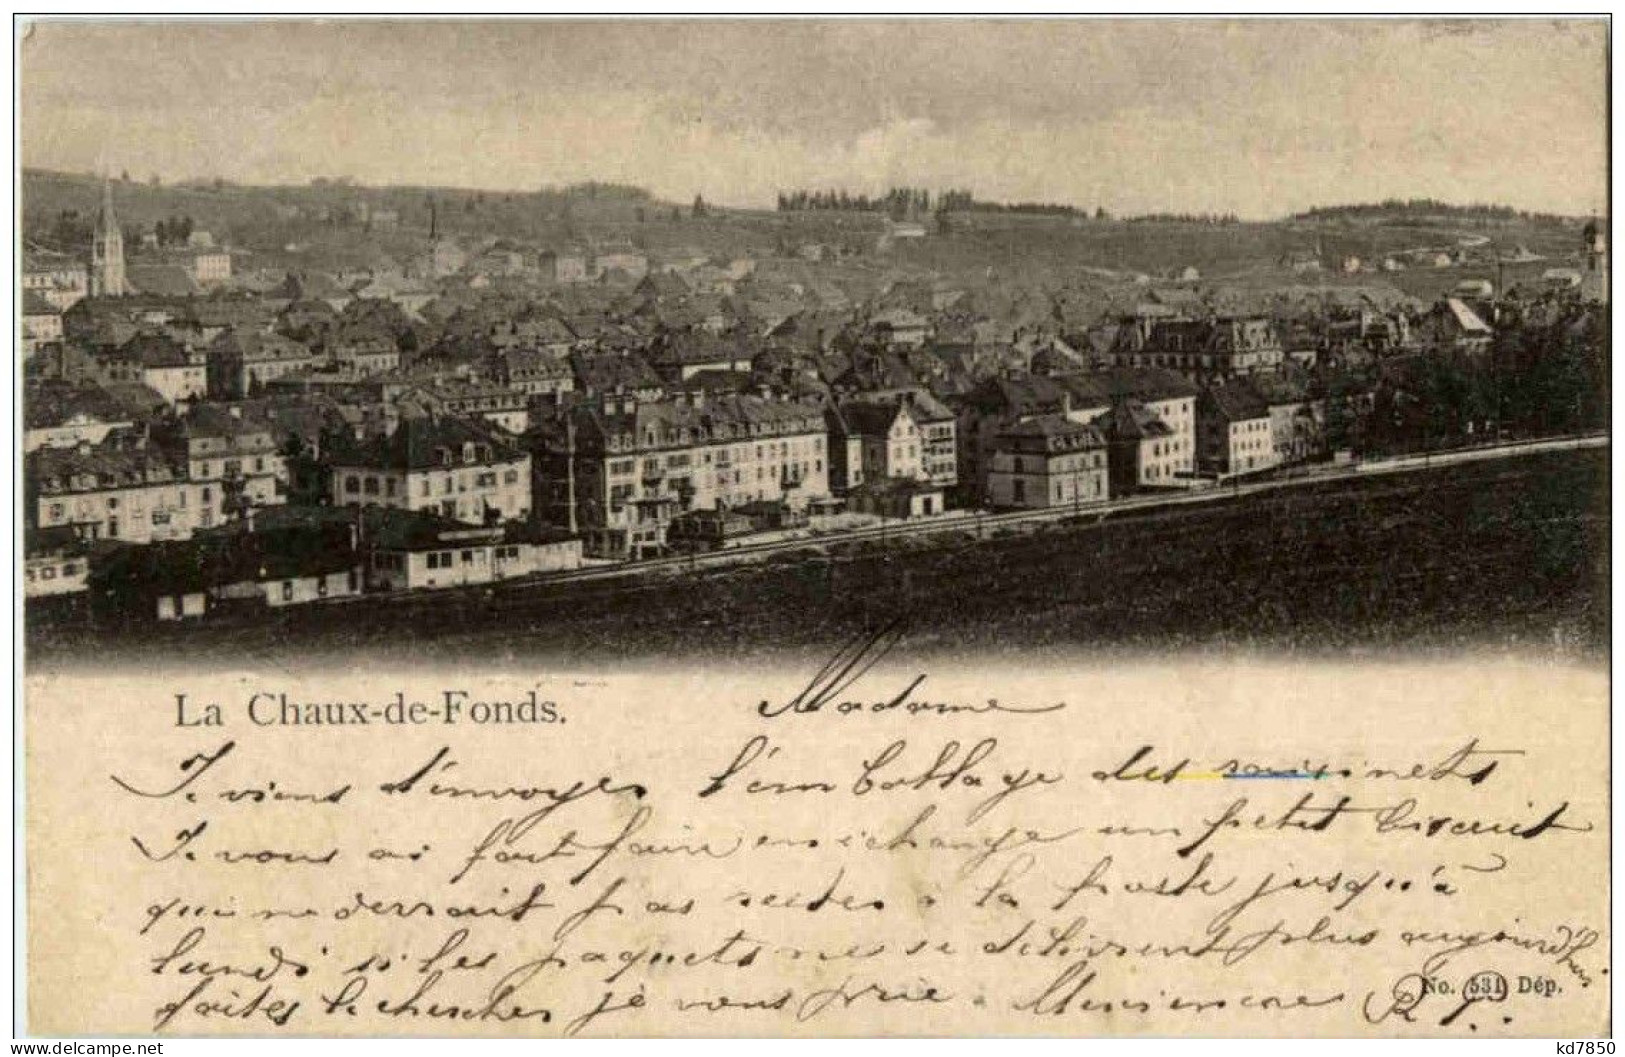 La Chaux-de-Fonds.
Madame
Je viens d'envoyer l'emballage des raisinets
Je vous ai fait faire en échange un petit biscuit
qui ne devrait pas rester à la poste jusqu'à
lundi si les paquets ne se délivrent plus aujourd'hui
faites le chercher je vous prie.
No. 531 Dép.
kd7850